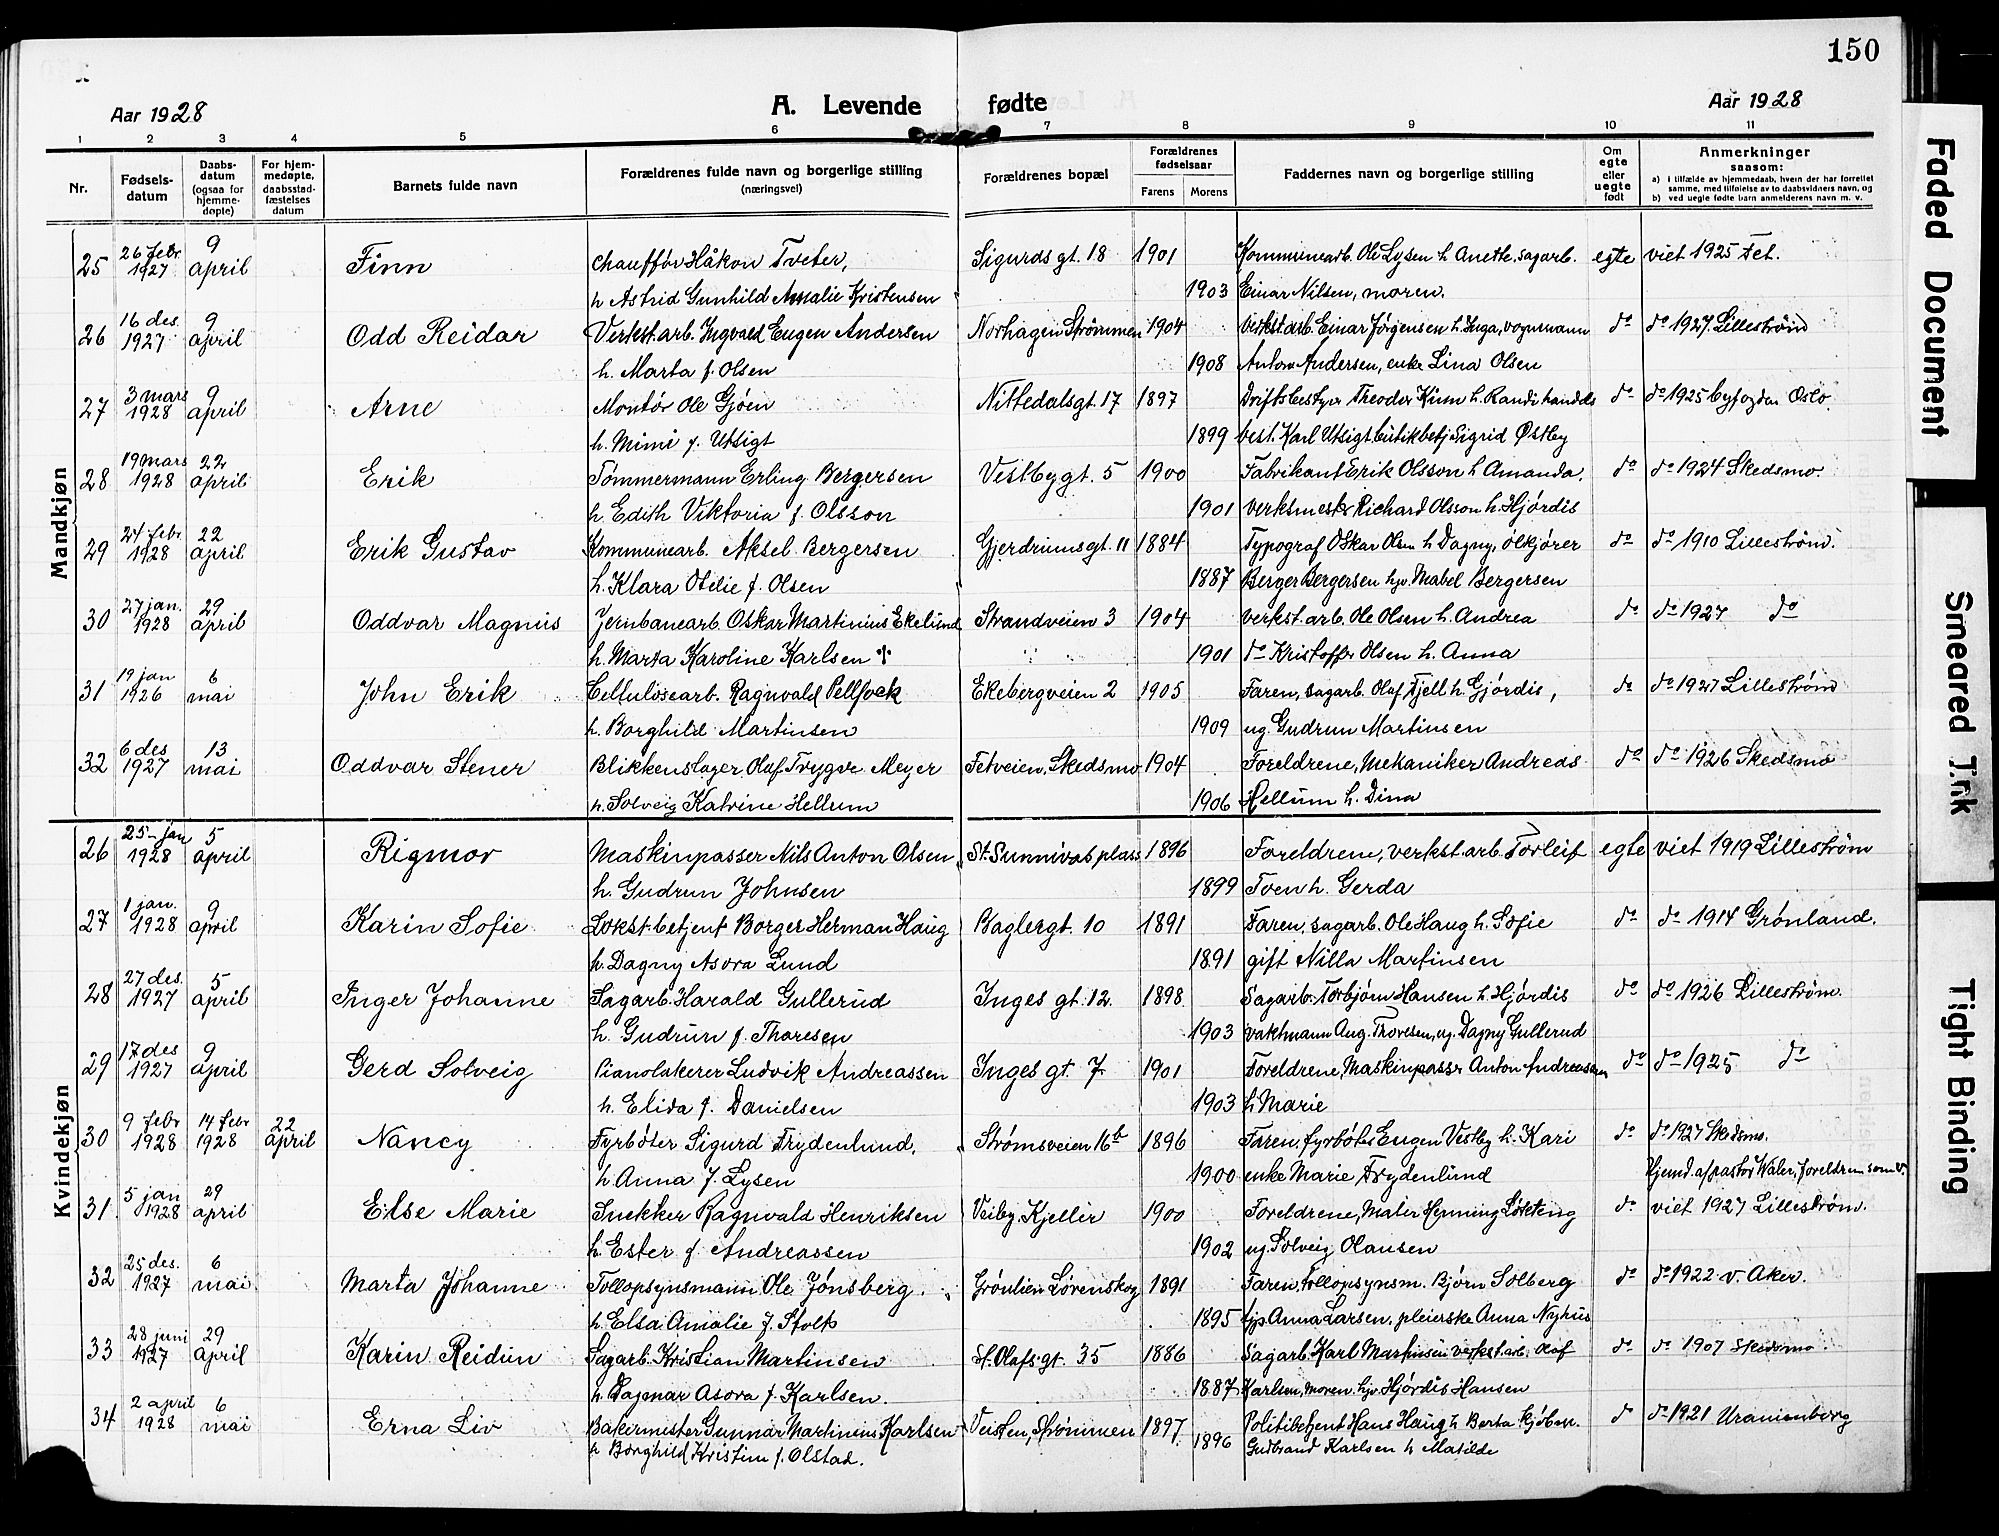 150
Aar 1928
A. Levende fødte
Aar 1928
1 2 3 4 5 6 7 8 9 10 11
Nr.
Fødsels-
datum
Daabs-
datum
(ogsaa for
hjemme-
døpte)
For hjem-
medøpte,
daabsstad-
fæstelses
datum
Barnets fulde navn
Forældrenes fulde navn og borgerlige stilling
(næringsvei)
Forældrenes bopæl
Forældrenes
fødselsaar
Farens Morens
Faddernes navn og borgerlige stilling
Om
egte
eller
uegte
født
Anmerkninger
saasom:
a) i tilfælde av hjemmedaab, hvem der har forrettet
samme, med tilføielse av to daabsvidners navn, og
b) ved uegte fødte barn anmelderens navn m. v.
Mandkjøn
26 febr. 9
25 1927 april Finn chauffør Håkon Tveter, Sigurds gt. 18 1901 Kommunearb. Ole Lysen h. Anette. sagarb. egte viet 1925 Fet.
h Astrid Gunhild Amalie Kristensen 1903 Einar Nilsen, moren.
16 des. 9
26 1927 april Odd Reidar Verkst.arb. Ingvald Eugen Andersen Norhagen Strømmen 1904 Verkst.arb. Einar Jørgensen h. Inga, vognmann do do 1927. Lillestrøm
h. Marta f. Olsen 1908 Anton Andersen, enke Lina Olsen
3 mars 9
27 1928 april Arne Montør Ole Gjøen Nittedalsgt. 17 1897 Driftsbestyer Theodor Kum h. Randi handels do do 1925 byfogden Oslo.
h. Mimi f. Utsigt 1899 best. Karl Utsigt butikbetj Sigrid Østby
19 mars 22
28 1928 april Erik Tømmermann Erling Bergersen Vestbygt. 5 1900 Fabrikant Erik Olsson h. Amanda. do do 1924 Skedsmo.
h. Edith Viktoria f. Olsson 1901 verksmester Richard Olsson h. Hjørdis
24 febr. 22
29 1928 april Erik Gustav Kommunearb. Aksel Bergersen Gjerdrumsgt. 11 1884 Typograf Oskar Olsen h Dagny, ølkjører do do 1910 Lillestrøm.
h. Klara Otilie f. Olsen 1887 Berger Bergersen hjv. Mabel Bergersen
27 jan. 29
30 1928 april Oddvar Magnus Jernbanearb. Oskar Martinius Ekelund Strandveien 3 1904 verkst.arb. Ole Olsen h. Andrea do do 1927 do
h. Marta Karoline Karlsen 1901 do Kristoffer Olsen h. Anna
19 jan 6
31 1926 mai John Erik Cellulosearb. Ragnvald Pellfoek Ekebergveien 2 1905 Faren, sagarb. Olaf Fjell h. Gjørdis, do do 1927 Lillestrøm
h. Borghild Martinsen 1909 ug. Gudrun Martinsen
6 des 13
32 1927 mai Oddvar Stener Blikkenslager Olaf Trygve Meyer Fetveien, Skedsmo 1904 Foreldrene, Mekaniker Andreas do do 1926 Skedsmo
h. Solveig Katrine Hellum 1906 Hellum h. Dina
Kvindekjøn
25 jan 5
26 1928 april Rigmor Maskinpasser Nils Anton Olsen St. Sunnivas plass 1896 Foreldrene, verkst.arb. Torleif egte viet 1919 Lillestrøm
h. Gudrun Johnsen 1899 Toen h. Gerda
1 jan. 9
27 1928 april Karin Sofie Lokst.betjent Borger Herman Haug Baglergt. 10 1891 Faren, sagarb. Ole Haug h. Sofie do do 1914 Grønland.
h. Dagny Asora Lund 1891 gift Nilla Martinsen
27 des. 5
28 1927 april Inger Johanne Sagarb. Harald Gullerud Inges gt. 12 1898 Sagarb. Torbjørn Hansen h. Hjørdis do do 1926 Lillestrøm.
h. Gudrun f. Thoresen 1903 vaktmann Aug. Thoresen, ug. Dagny Gullerud
17 des 9
29 1927 april Gerd Solveig Pianolakerer Ludvik Andreassen Inges gt. 7 1901 Foreldrene, Maskinpasser Anton Andreassen do do 1925 do
h. Elida f. Danielsen 1903 h Marie
9 febr 14 febr 22
30 1928 1928 april Nancy Fyrbøter Sigurd Frydenlund, Strømsveien 16b 1896 Faren, fyrbøter Eugen Vestby h. Kari do do 1927 Skedsmo.
h Anna f. Lysen 1900 enke Marie Frydenlund Hjemd. af pastor Waler, foreldrene som v.
5 jan 29
31 1928 april Else Marie Snekker Ragnvald Henriksen Veiby, Kjeller 1900 Foreldrene, Maler Henning Løkteng do viet 1927 Lillestrøm.
h. Ester f. Andreassen 1902 ug. Solveig Olausen
25 des. 6
32 1927 mai. Marta Johanne Tollopsynsmann Ole Jønsberg. Grønlien Lørenskog 1891 Faren, Tollopsynsm. Bjørn Solberg do do 1922 v. Aker.
h Elsa Amalie f. Stolts 1895 tjp. Anna Larsen, pleierske Anna Nyhus
28 juni 29
33 1927 april Karin Reidun Sagarb. Kristian Martinsen St. Olafs gt. 35 1886 Sagarb. Karl Martinsen verkst.arb. Olaf do do 1907 Skedsmo.
h. Dagmar Asora f. Karlsen. 1887 Karlsen, moren. hjv. Hjørdis Hansen
2 april 6
34 1928 mai Erna Liv Bakermester Gunnar Martinius Karlsen Veisten, Strømmen 1897 Politibetjent Hans Haug h Berta kjøbm. d do 1921 Uranienborg
h Borghild Kristine f. Olstad. 1896 Gudbrand Karlsen h Matilde
Faded Document
Smeared Ink
Tight Binding